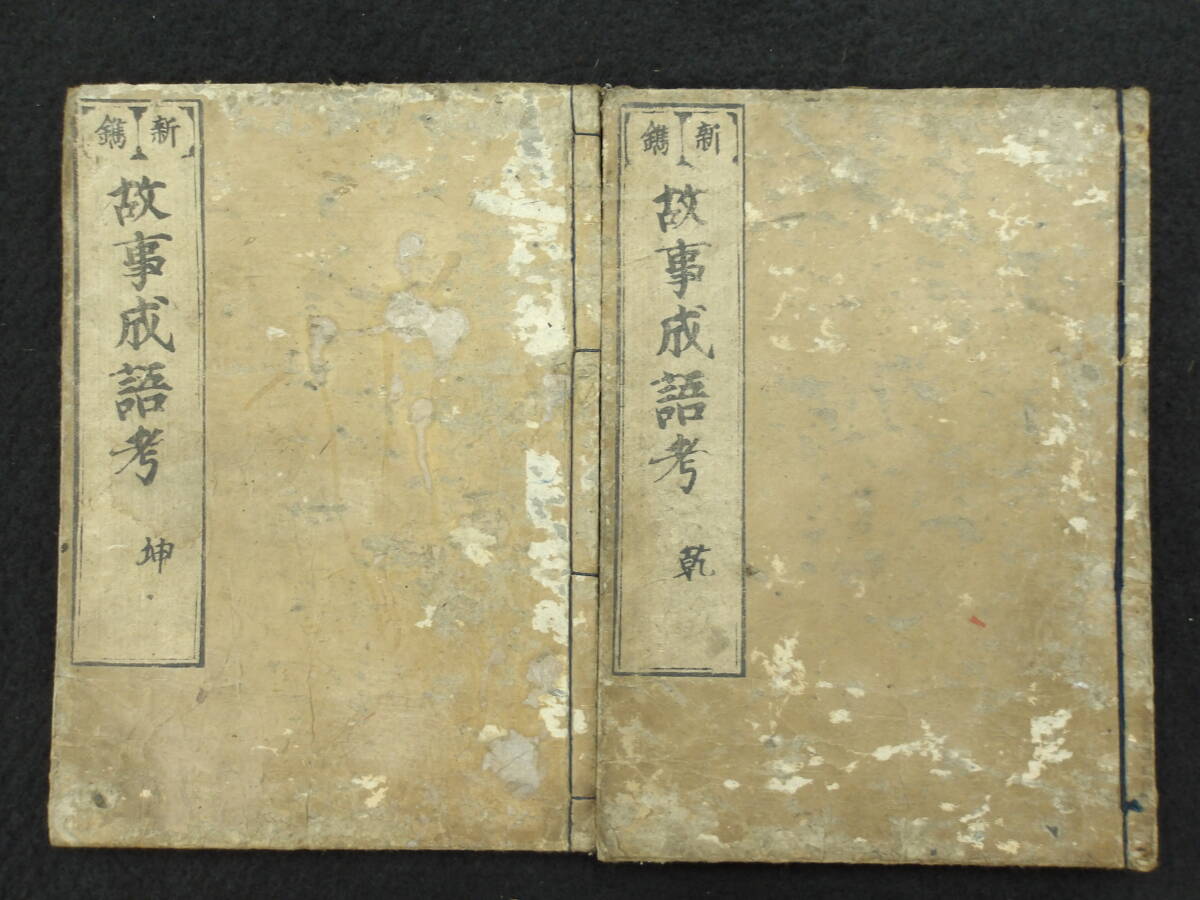 新鐫
故事成語考
乾
新鐫
故事成語考
坤